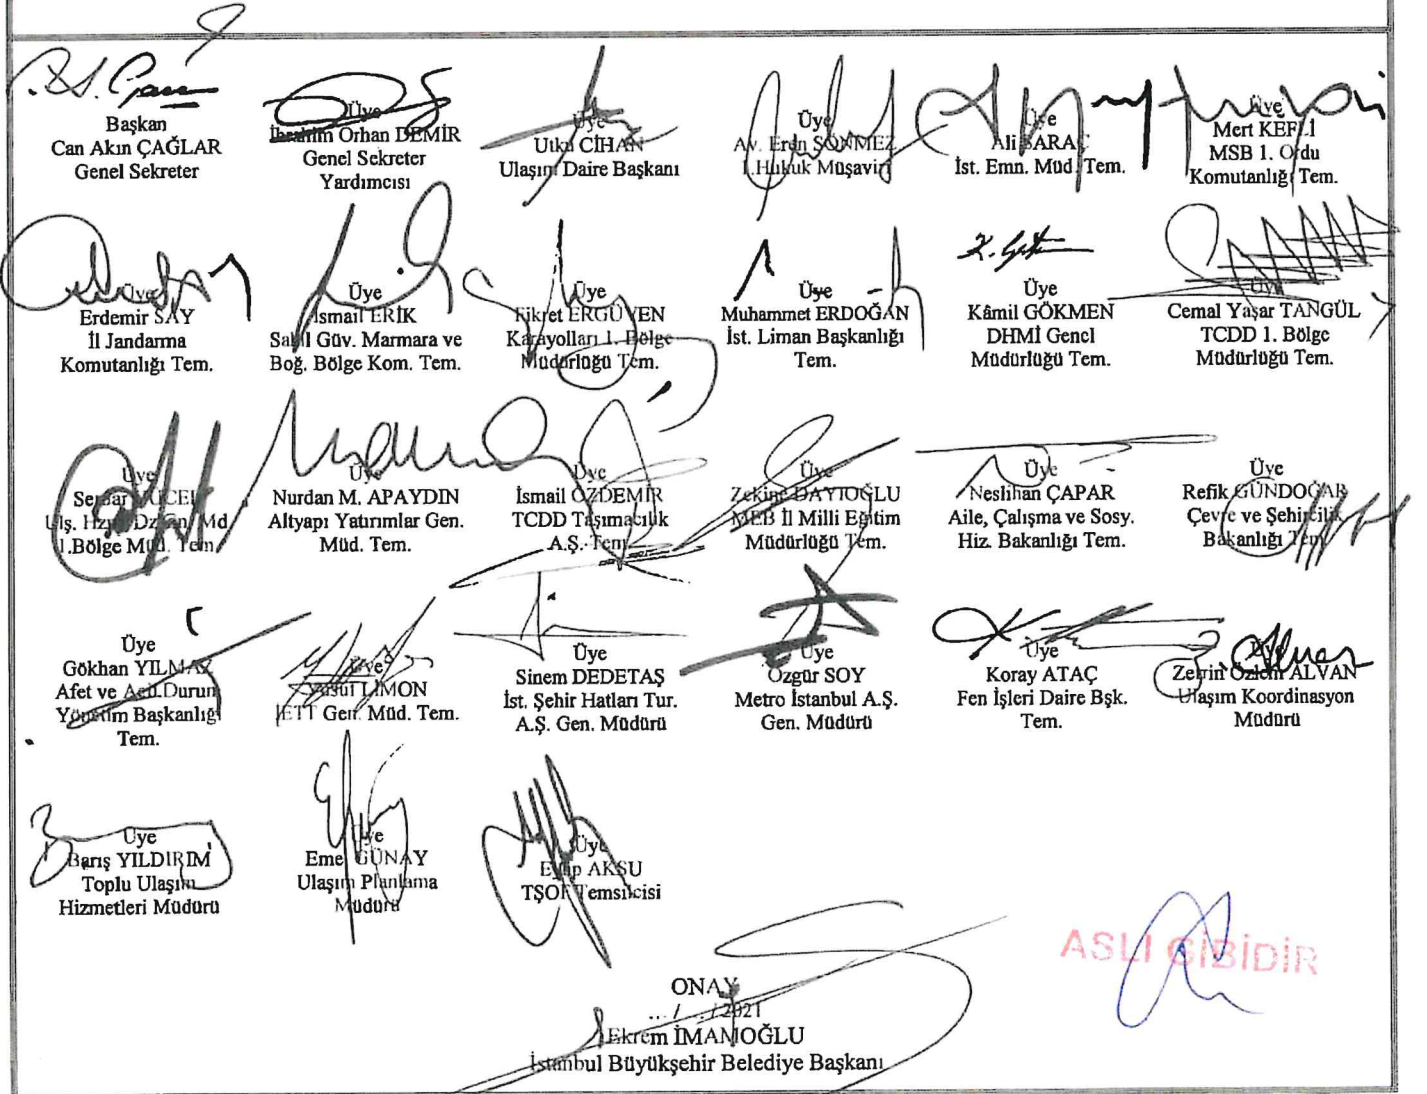 Başkan
Can Akın ÇAĞLAR
Genel Sekreter
Üye
İbrahim Orhan DEMİR
Genel Sekreter
Yardımcısı
Üye
Utku CİHAN
Ulaşım Daire Başkanı
Üye
Av. Eren SÖNMEZ
1.Hukuk Müşaviri
Üye
Ali SARAÇ
İst. Emn. Müd. Tem.
Üye
Mert KEFLİ
MSB 1. Ordu
Komutanlığı Tem.
Üye
Erdemir SAY
İl Jandarma
Komutanlığı Tem.
Üye
İsmail ERİK
Sahil Güv. Marmara ve
Boğ. Bölge Kom. Tem.
Üye
Fikret ERGÜVEN
Karayolları 1. Bölge
Müdürlüğü Tem.
Üye
Muhammet ERDOĞAN
İst. Liman Başkanlığı
Tem.
Üye
Kâmil GÖKMEN
DHMİ Genel
Müdürlüğü Tem.
Üye
Cemal Yaşar TANGÜL
TCDD 1. Bölge
Müdürlüğü Tem.
Üye
Serdar YÜCEL
Ulş. Hzm. Düzen. Md
1.Bölge Müd. Tem
Üye
Nurdan M. APAYDIN
Altyapı Yatırımlar Gen.
Müd. Tem.
Üye
İsmail ÖZDEMİR
TCDD Taşımacılık
A.Ş. Tem
Üye
Zekine DAYIOĞLU
MEB İl Milli Eğitim
Müdürlüğü Tem.
Üye
Neslihan ÇAPAR
Aile, Çalışma ve Sosy.
Hiz. Bakanlığı Tem.
Üye
Refik GÜNDOĞAR
Çevre ve Şehircilik
Bakanlığı Tem
Üye
Gökhan YILMAZ
Afet ve Acil Durum
Yönetim Başkanlığı
Tem.
Üye
Yusuf LİMON
İETT Gen. Müd. Tem.
Üye
Sinem DEDETAŞ
İst. Şehir Hatları Tur.
A.Ş. Gen. Müdürü
Üye
Özgür SOY
Metro İstanbul A.Ş.
Gen. Müdürü
Üye
Koray ATAÇ
Fen İşleri Daire Bşk.
Tem.
Üye
Zerrin Özlem ALVAN
Ulaşım Koordinasyon
Müdürü
Üye
Barış YILDIRIM
Toplu Ulaşım
Hizmetleri Müdürü
Üye
Emel GÜNAY
Ulaşım Planlama
Müdürü
Üye
Eyüp AKSU
TŞOF Temsilcisi
ONAY
... / ... / 2021
Ekrem İMAMOĞLU
İstanbul Büyükşehir Belediye Başkanı
ASLI GİBİDİR